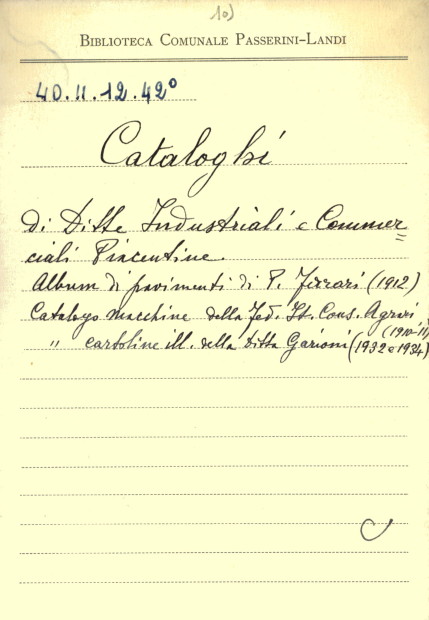 10)
BIBLIOTECA COMUNALE PASSERINI-LANDI
40.II.12.42°
Cataloghi
di Ditte Industriali e Commer=
ciali Piacentine.
Album di pavimenti di P. Ferrari (1912)
Catalogo macchine della Fed. It. Cons. Agrari
(1910-11)
" cartoline ill. della Ditta Garioni (1932 e 1934)